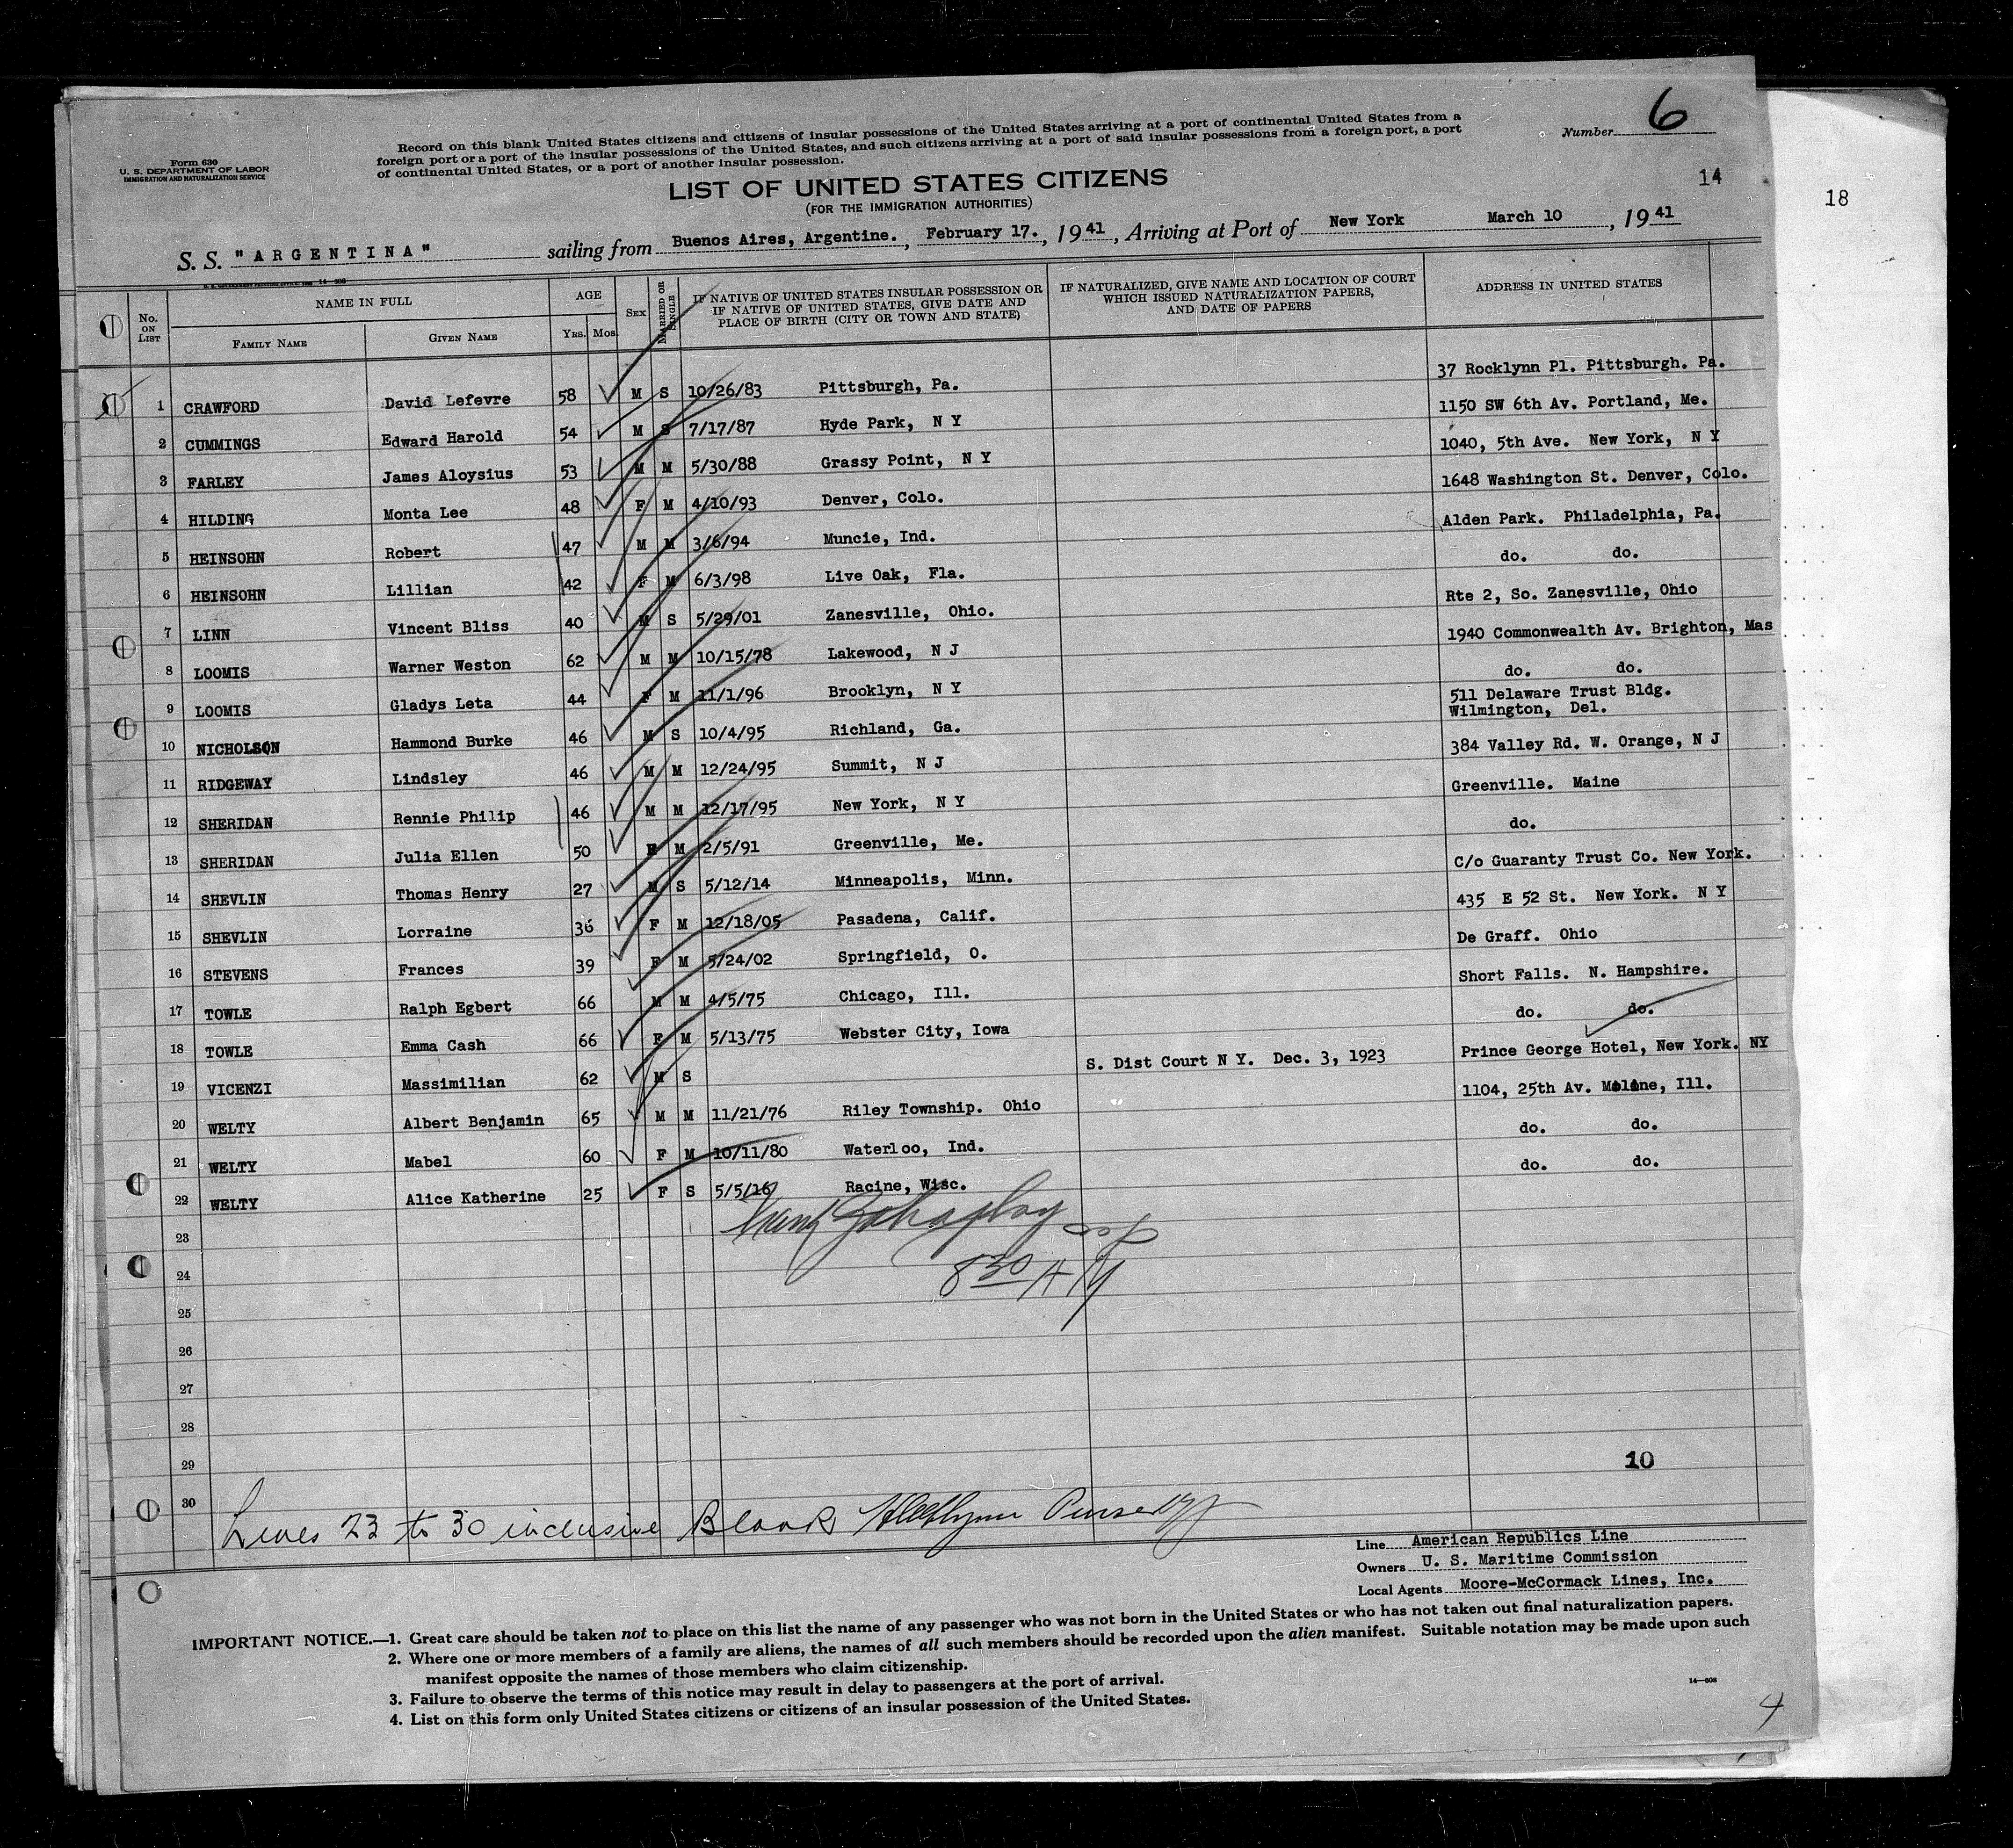 Number 6
Form 630
U. S. DEPARTMENT OF LABOR
IMMIGRATION AND NATURALIZATION SERVICE
Record on this blank United States citizens and citizens of insular possessions of the United States arriving at a port of continental United States from a
foreign port or a port of the insular possessions of the United States, and such citizens arriving at a port of said insular possessions from a foreign port, a port
of continental United States, or a port of another insular possession.
LIST OF UNITED STATES CITIZENS
(FOR THE IMMIGRATION AUTHORITIES)
14
18
S. S. "ARGENTINA" sailing from Buenos Aires, Argentine., February 17., 1941, Arriving at Port of New York March 10, 1941
No. ON LIST NAME IN FULL FAMILY NAME GIVEN NAME AGE YRS. MOS. SEX MARRIED OR SINGLE IF NATIVE OF UNITED STATES INSULAR POSSESSION OR IF NATIVE OF UNITED STATES, GIVE DATE AND PLACE OF BIRTH (CITY OR TOWN AND STATE) IF NATURALIZED, GIVE NAME AND LOCATION OF COURT WHICH ISSUED NATURALIZATION PAPERS, AND DATE OF PAPERS ADDRESS IN UNITED STATES
1 CRAWFORD David Lefevre 58 M S 10/26/83 Pittsburgh, Pa. 37 Rocklynn Pl. Pittsburgh. Pa.
2 CUMMINGS Edward Harold 54 M S 7/17/87 Hyde Park, N Y 1150 SW 6th Av. Portland, Me.
3 FARLEY James Aloysius 53 M M 5/30/88 Grassy Point, N Y 1040, 5th Ave. New York, N Y
4 HILDING Monta Lee 48 F M 4/10/93 Denver, Colo. 1648 Washington St. Denver, Colo.
5 HEINSOHN Robert 47 M M 3/6/94 Muncie, Ind. Alden Park. Philadelphia, Pa.
6 HEINSOHN Lillian 42 F M 6/3/98 Live Oak, Fla. do. do.
7 LINN Vincent Bliss 40 M S 5/29/01 Zanesville, Ohio. Rte 2, So. Zanesville, Ohio
8 LOOMIS Warner Weston 62 M M 10/15/78 Lakewood, N J 1940 Commonwealth Av. Brighton, Mas
9 LOOMIS Gladys Leta 44 F M 11/1/96 Brooklyn, N Y do. do.
10 NICHOLSON Hammond Burke 46 M S 10/4/95 Richland, Ga. 511 Delaware Trust Bldg. Wilmington, Del.
11 RIDGEWAY Lindsley 46 M M 12/24/95 Summit, N J 384 Valley Rd. W. Orange, N J
12 SHERIDAN Rennie Philip 46 M M 12/17/95 New York, N Y Greenville. Maine
13 SHERIDAN Julia Ellen 50 F M 2/5/91 Greenville, Me. do.
14 SHEVLIN Thomas Henry 27 M S 5/12/14 Minneapolis, Minn. C/o Guaranty Trust Co. New York.
15 SHEVLIN Lorraine 36 F M 12/18/05 Pasadena, Calif. 435 E 52 St. New York. N Y
16 STEVENS Frances 39 F M 5/24/02 Springfield, O. De Graff. Ohio
17 TOWLE Ralph Egbert 66 M M 4/5/75 Chicago, Ill. Short Falls. N. Hampshire.
18 TOWLE Emma Cash 66 F M 5/13/75 Webster City, Iowa do. do.
19 VICENZI Massimilian 62 M S S. Dist Court N Y. Dec. 3, 1923 Prince George Hotel, New York. NY
20 WELTY Albert Benjamin 65 M M 11/21/76 Riley Township. Ohio 1104, 25th Av. Moline, Ill.
21 WELTY Mabel 60 F M 10/11/80 Waterloo, Ind. do. do.
22 WELTY Alice Katherine 25 F S 5/5/16 Racine, Wisc. do. do.
23
24 8 30 AM
25
26
27
28
29 10
30
Lines 23 to 30 inclusive Blank Purser
Line American Republics Line
Owners U. S. Maritime Commission
Local Agents Moore-McCormack Lines, Inc.
IMPORTANT NOTICE.—1. Great care should be taken not to place on this list the name of any passenger who was not born in the United States or who has not taken out final naturalization papers.
2. Where one or more members of a family are aliens, the names of all such members should be recorded upon the alien manifest. Suitable notation may be made upon such
manifest opposite the names of those members who claim citizenship.
3. Failure to observe the terms of this notice may result in delay to passengers at the port of arrival.
4. List on this form only United States citizens or citizens of an insular possession of the United States.
14—608
4